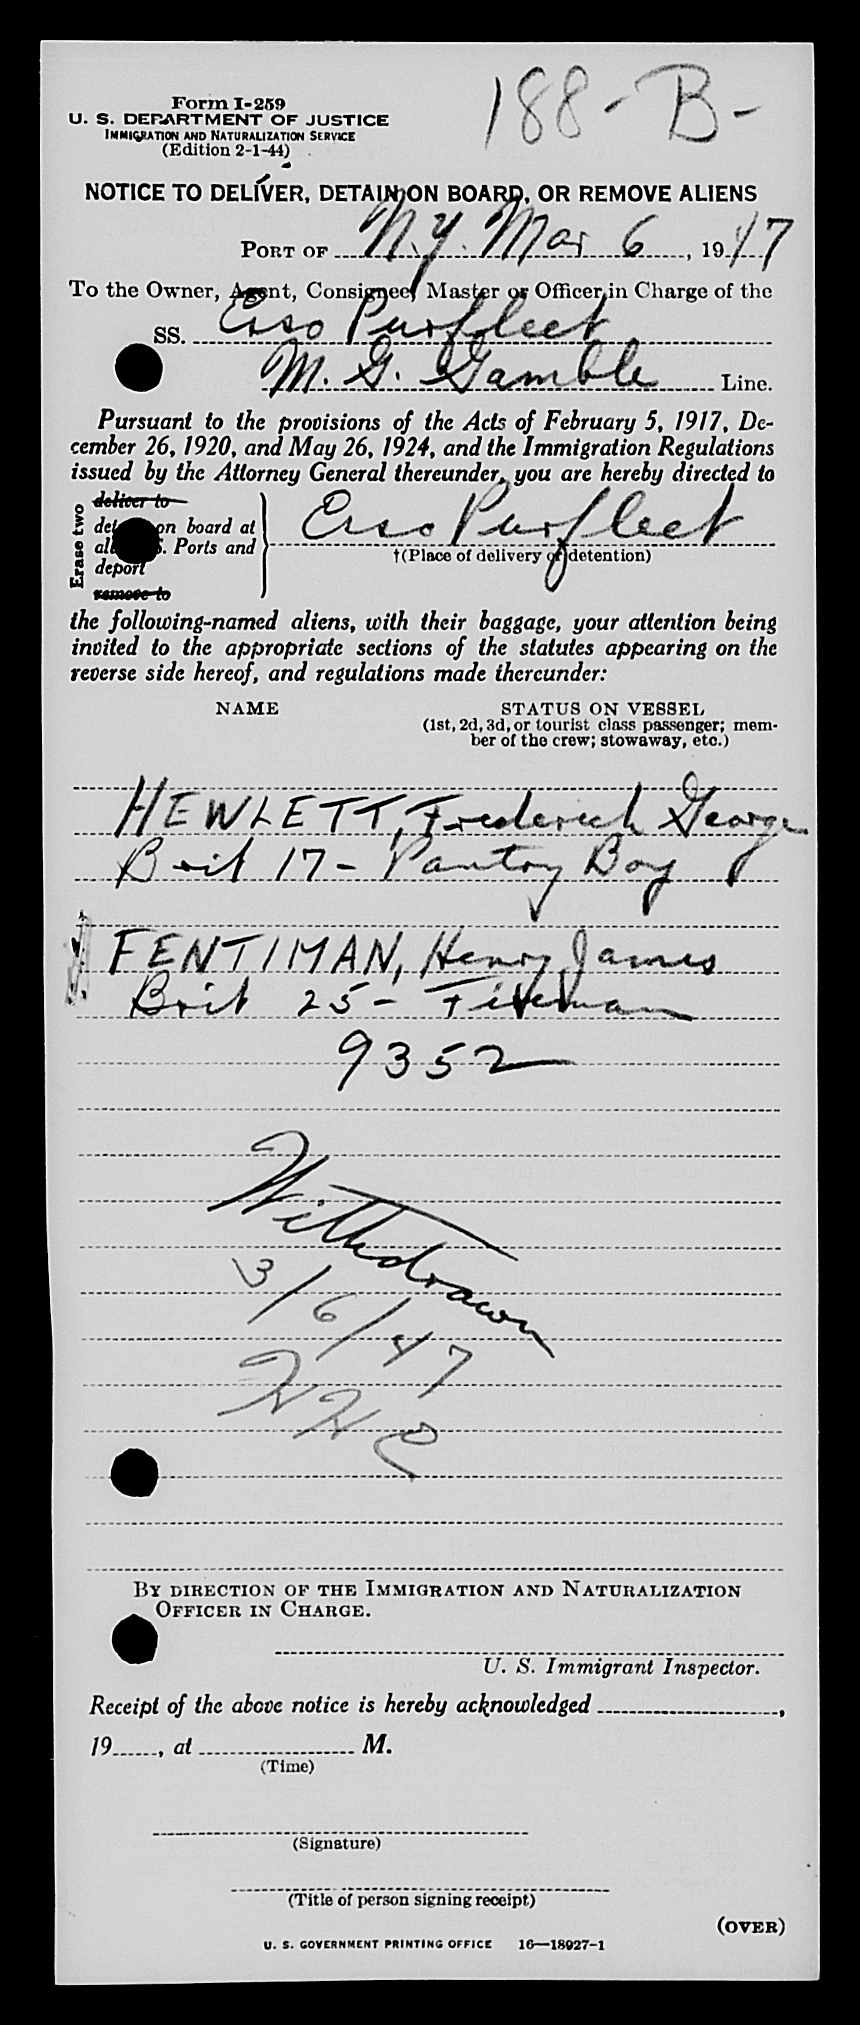 188-B-
Form I-259
U. S. DEPARTMENT OF JUSTICE
IMMIGRATION AND NATURALIZATION SERVICE
(Edition 2-1-44)
NOTICE TO DELIVER, DETAIN ON BOARD, OR REMOVE ALIENS
PORT OF N.Y. Mar 6, 1947
To the Owner, Agent, Consignee, Master or Officer in Charge of the
SS. Esso Purfleet
M. G. Gamble Line.
Pursuant to the provisions of the Acts of February 5, 1917, De-
cember 26, 1920, and May 26, 1924, and the Immigration Regulations
issued by the Attorney General thereunder, you are hereby directed to
Erase two
deliver to
detain on board at
all U.S. Ports and
deport
remove to
Esso Purfleet
†(Place of delivery or detention)
the following-named aliens, with their baggage, your attention being
invited to the appropriate sections of the statutes appearing on the
reverse side hereof, and regulations made thereunder:
NAME STATUS ON VESSEL
(1st, 2d, 3d, or tourist class passenger; mem-
ber of the crew; stowaway, etc.)
HEWLETT, Frederick George
Brit 17 - Pantry Boy
FENTIMAN, Henry James
Brit 25 - Fireman
9352
Withdrawn
3/6/47
BY DIRECTION OF THE IMMIGRATION AND NATURALIZATION
OFFICER IN CHARGE.
U. S. Immigrant Inspector.
Receipt of the above notice is hereby acknowledged ,
19 , at M.
(Time)
(Signature)
(Title of person signing receipt)
(OVER)
U. S. GOVERNMENT PRINTING OFFICE 16—18927-1